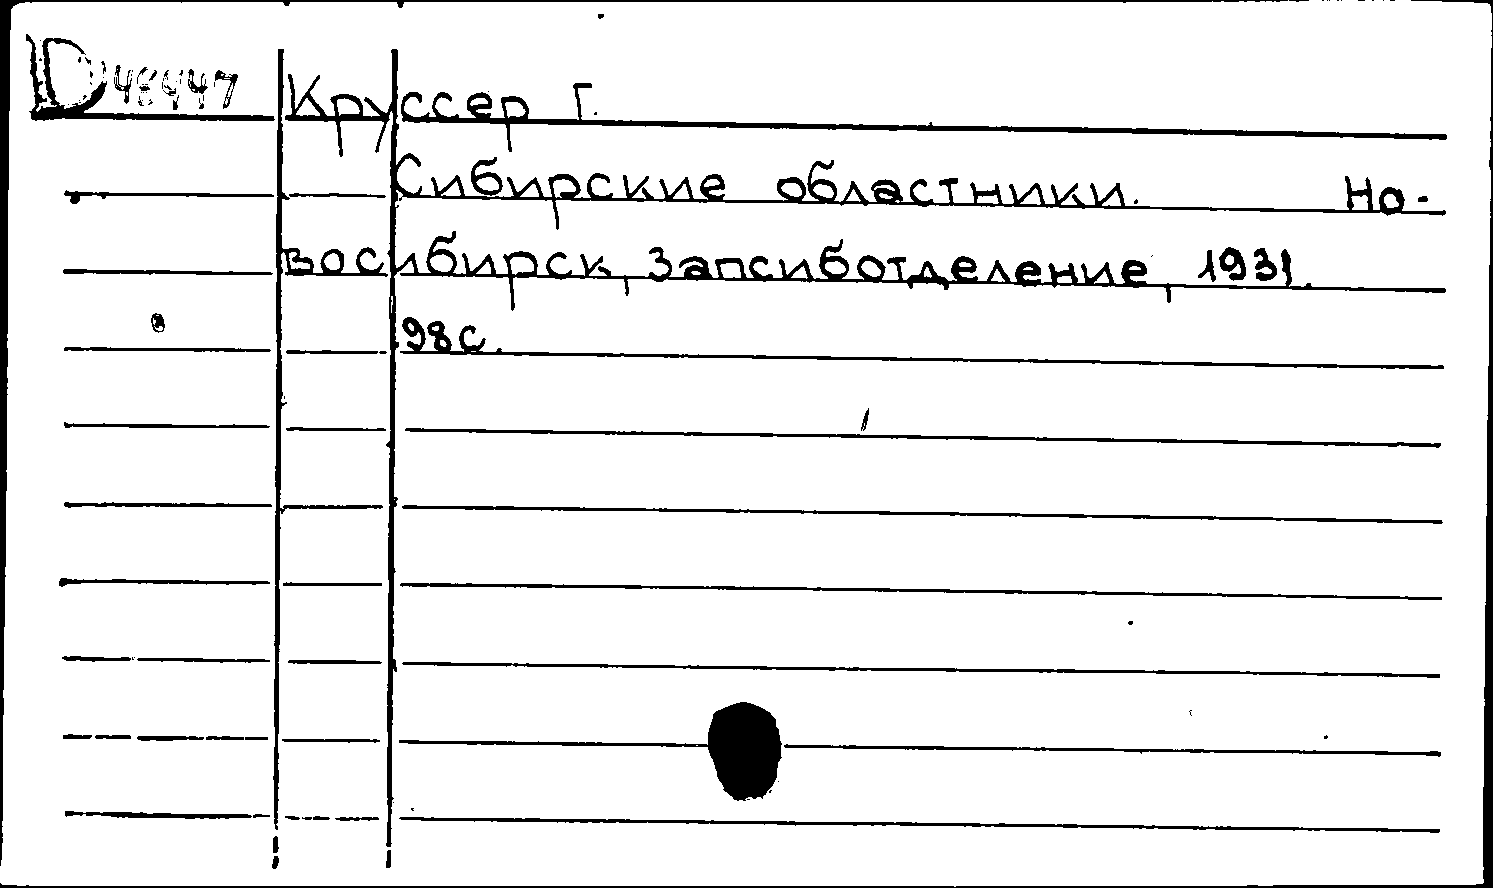 D48447 Круссер Г.
Сибирские областники. Но-
восибирск, Запсиботделение, 1931.
98с.